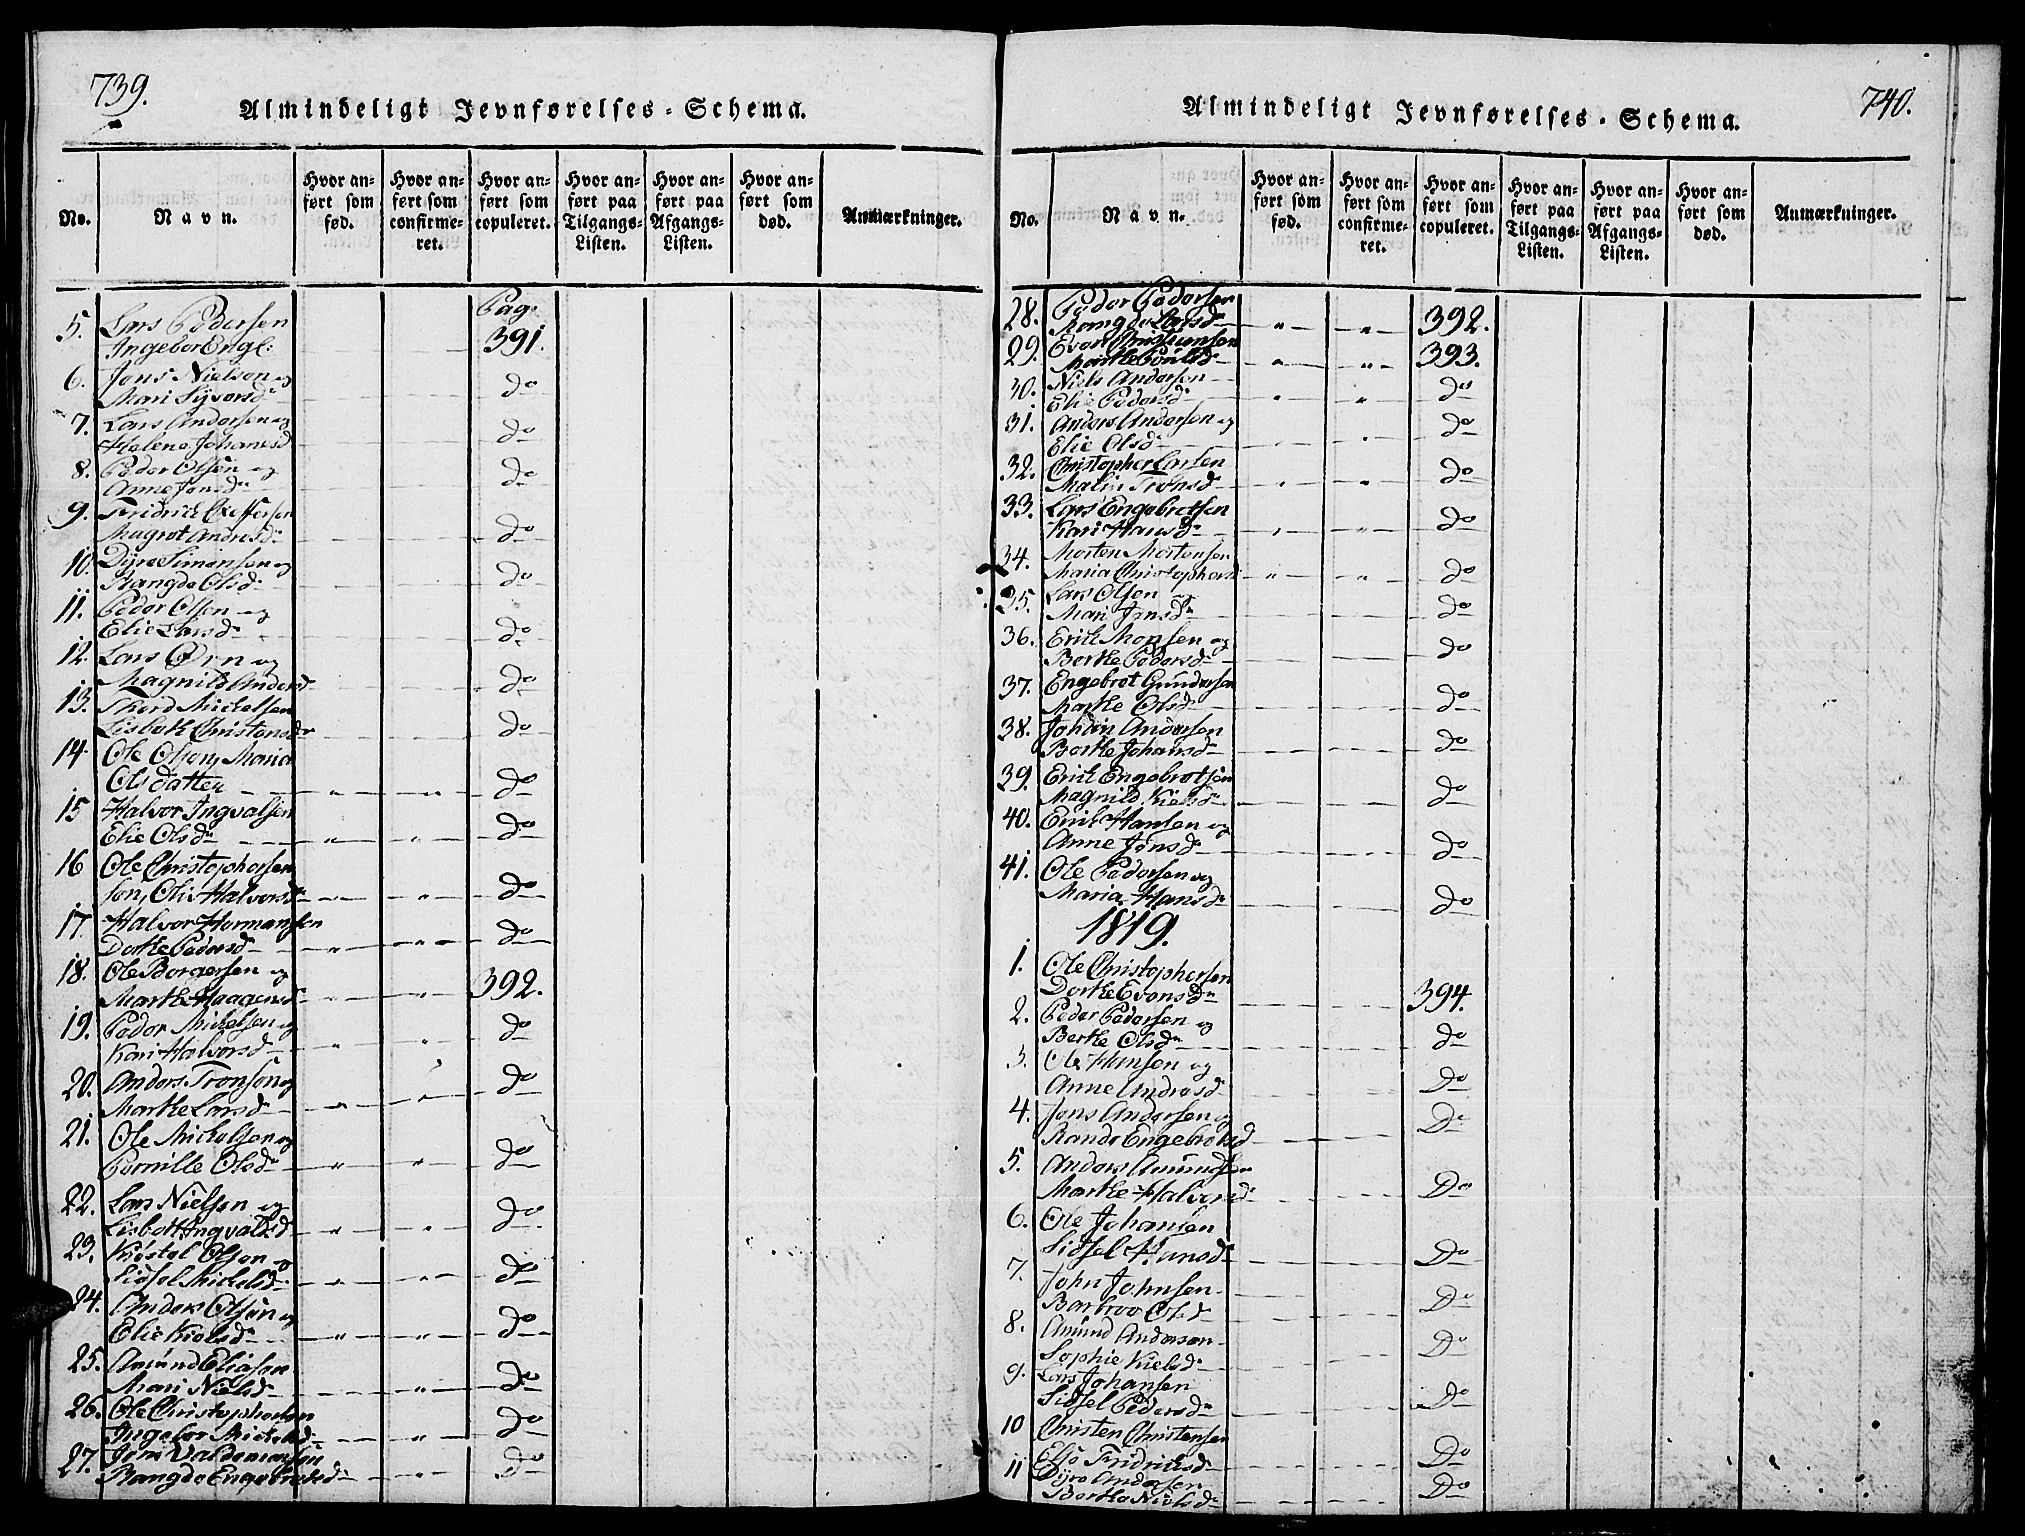 739.
Almindeligt Jevnførelses-Schema.
No.
Navn.
Hvor anført som fød.
Hvor anført som confirmeret.
Hvor anført som copuleret.
Hvor anført paa Tilgangs-Listen.
Hvor anført paa Afgangs-Listen.
Hvor anført som død.
Anmærkninger.
Pag.
5. Lars Pedersen
Ingebor Engl: 391.
6. Jens Nielsen og
Mari Syversd. do
7. Lars Andersen og
Helene Johansd do
8. Peder Olsen og
Anne Jensd. do
9. Fridrick
Magret Andersd. do
10. Dyre Simensen og
Rangde Olsd. do
11. Peder Olsen og
Elie Larsd. do
12. Lars Ørn og
Magnild Andersd do
13. Thord Mickelsen
Lisbeth Christensdr do
14. Ole Olsen, Maria
Olsdatter do
15 Halvor Ingvalsen
Elie Olsd. " " do
16 Ole Christophersen
sen, Oli Halvorsd. " " do
17. Halvor Hermansen
Dorthe Pedersd " " do
18. Ole Borgersen og
Marthe Haagensd. " " 392.
19. Peder Mickelsen og
Kari Halvorsd " " do
20. Anders Tronsen og
Marthe Larsd. " " do
21. Ole Mickelsen og
Pernille Olsd. " " do
22. Lars Nielsen og
Lisbet Ingvalsd " " do
23. Kiøstel Olsen og
Sidsel Mickelsd. " " do
24. Anders Olsen og
Elie Kielsd. " " do
25. Amund Eliasen
Mari Nielsd. " do
26. Ole Christophersen
Ingebor Mickelsd. " do
27. Jens Valdemarsen
Rangde Engebretsd. " do
740.
Almindeligt Jevnførelses-Schema.
No.
Navn.
Hvor anført som fød.
Hvor anført som confirmeret.
Hvor anført som copuleret.
Hvor anført paa Tilgangs-Listen.
Hvor anført paa Afgangs-Listen.
Hvor anført som død.
Anmærkninger.
28. Peder Pedersen
Rangde Larsd. " " 392.
29. Even Christiansen
Marthe Poulsd. " " 393.
30. Niels Andersen
Elie Pedersd. " " do
31. Anders Andersen og
Elie Olsd. do
32. Christopher Larsen
Malin Tronsd. do
33. Lars Engebretsen
Kari Hansd. do
34. Morten Mortensen
Maria Christophersd " " do
35. Lars Olsen og
Mari Jensd. do
36. Erick Monsen og
Berthe Pedersd. do
37. Engebret Gundersen
Marthe Olsd. do
38. Johan Andersen
Berthe Johansd. do
39. Erick Engebretsen
Magnild Kielsd. do
40. Erick Hansen og
Anne Jensd. do
41. Ole Pedersen og
Maria Hansd. do
1819.
1. Ole Christophersen
Dorthe Evensd. 394.
2. Peder Pedersen og
Berthe Olsd. do
3. Ole Hansen og
Anne Andersd. Do
4. Jens Andersen og
Rande Engebretsd Do
5. Anders Amundsen
Marthe Halvorsd. Do
6. Ole Johansen
Sidsel Hansd. Do
7. John Johnsen
Barbroe Olsd Do
8. Amund Andersen
Sophie Kielsd. Do
9. Lars Johansen
Sidsel Pedersd. Do
10 Christen Christensen
Else Fridricksd. Do
11 Dyre Andersen
Berthe Nielsd. Do